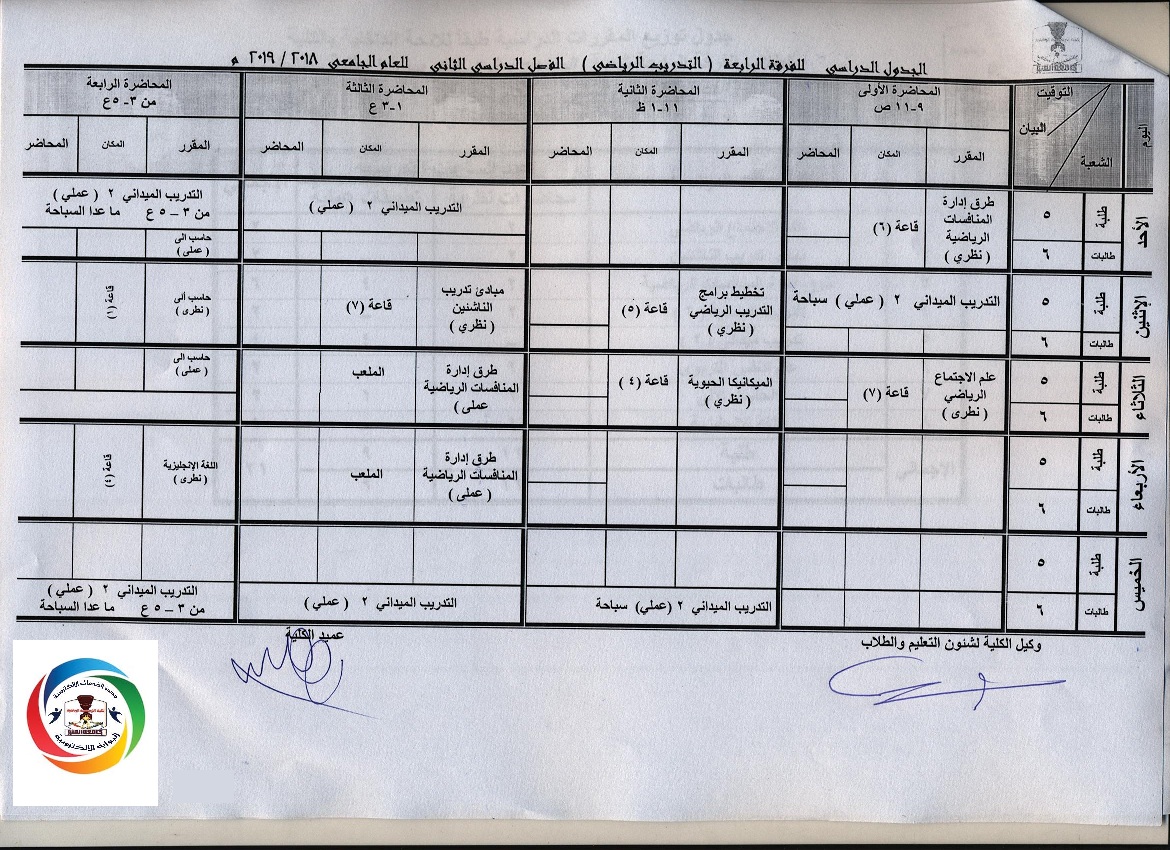 الجدول الدراسي للفرقة الرابعة ( التدريب الرياضي ) الفصل الدراسي الثاني للعام الجامعي ٢٠١٨ / ٢٠١٩ م
اليوم
التوقيت
البيان
الشعبة
المحاضرة الأولى
٩-١١ ص
المحاضرة الثانية
١١-١ ظ
المحاضرة الثالثة
١-٣ ع
المحاضرة الرابعة
من ٣-٥ ع
المقرر المكان المحاضر
المقرر المكان المحاضر
المقرر المكان المحاضر
المقرر المكان المحاضر
الأحد
طلبة ٥
طالبات ٦
طرق إدارة
المنافسات
الرياضية
( نظري )
قاعة (٦)
التدريب الميداني ٢ ( عملي )
التدريب الميداني ٢ ( عملي )
من ٣ – ٥ ع ما عدا السباحة
حاسب الى
( عملى )
الإثنين
طلبة ٥
طالبات ٦
التدريب الميداني ٢ ( عملي ) سباحة
تخطيط برامج
التدريب الرياضي
( نظري )
قاعة (٥)
مبادئ تدريب
الناشئين
( نظري )
قاعة (٧)
حاسب ألى
( نظرى )
قاعة (١)
الثلاثاء
طلبة ٥
طالبات ٦
علم الاجتماع
الرياضي
( نظرى )
قاعة (٧)
الميكانيكا الحيوية
( نظري )
قاعة ( ٤ )
طرق إدارة
المنافسات الرياضية
عملى )
الملعب
حاسب الى
( عملى )
الأربعاء
طلبة ٥
طالبات ٦
طرق إدارة
المنافسات الرياضية
( عملى )
الملعب
اللغة الإنجليزية
( نظرى )
قاعة (٤)
الخميس
طلبة ٥
طالبات ٦
التدريب الميداني ٢ (عملي) سباحة
التدريب الميداني ٢ ( عملي )
التدريب الميداني ٢ ( عملي )
من ٣ – ٥ ع ما عدا السباحة
وكيل الكلية لشئون التعليم والطلاب
عميد الكلية
البوابة الالكترونية